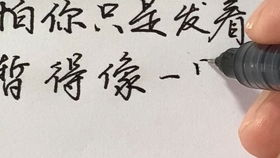 怕你只是发着
暂得像一